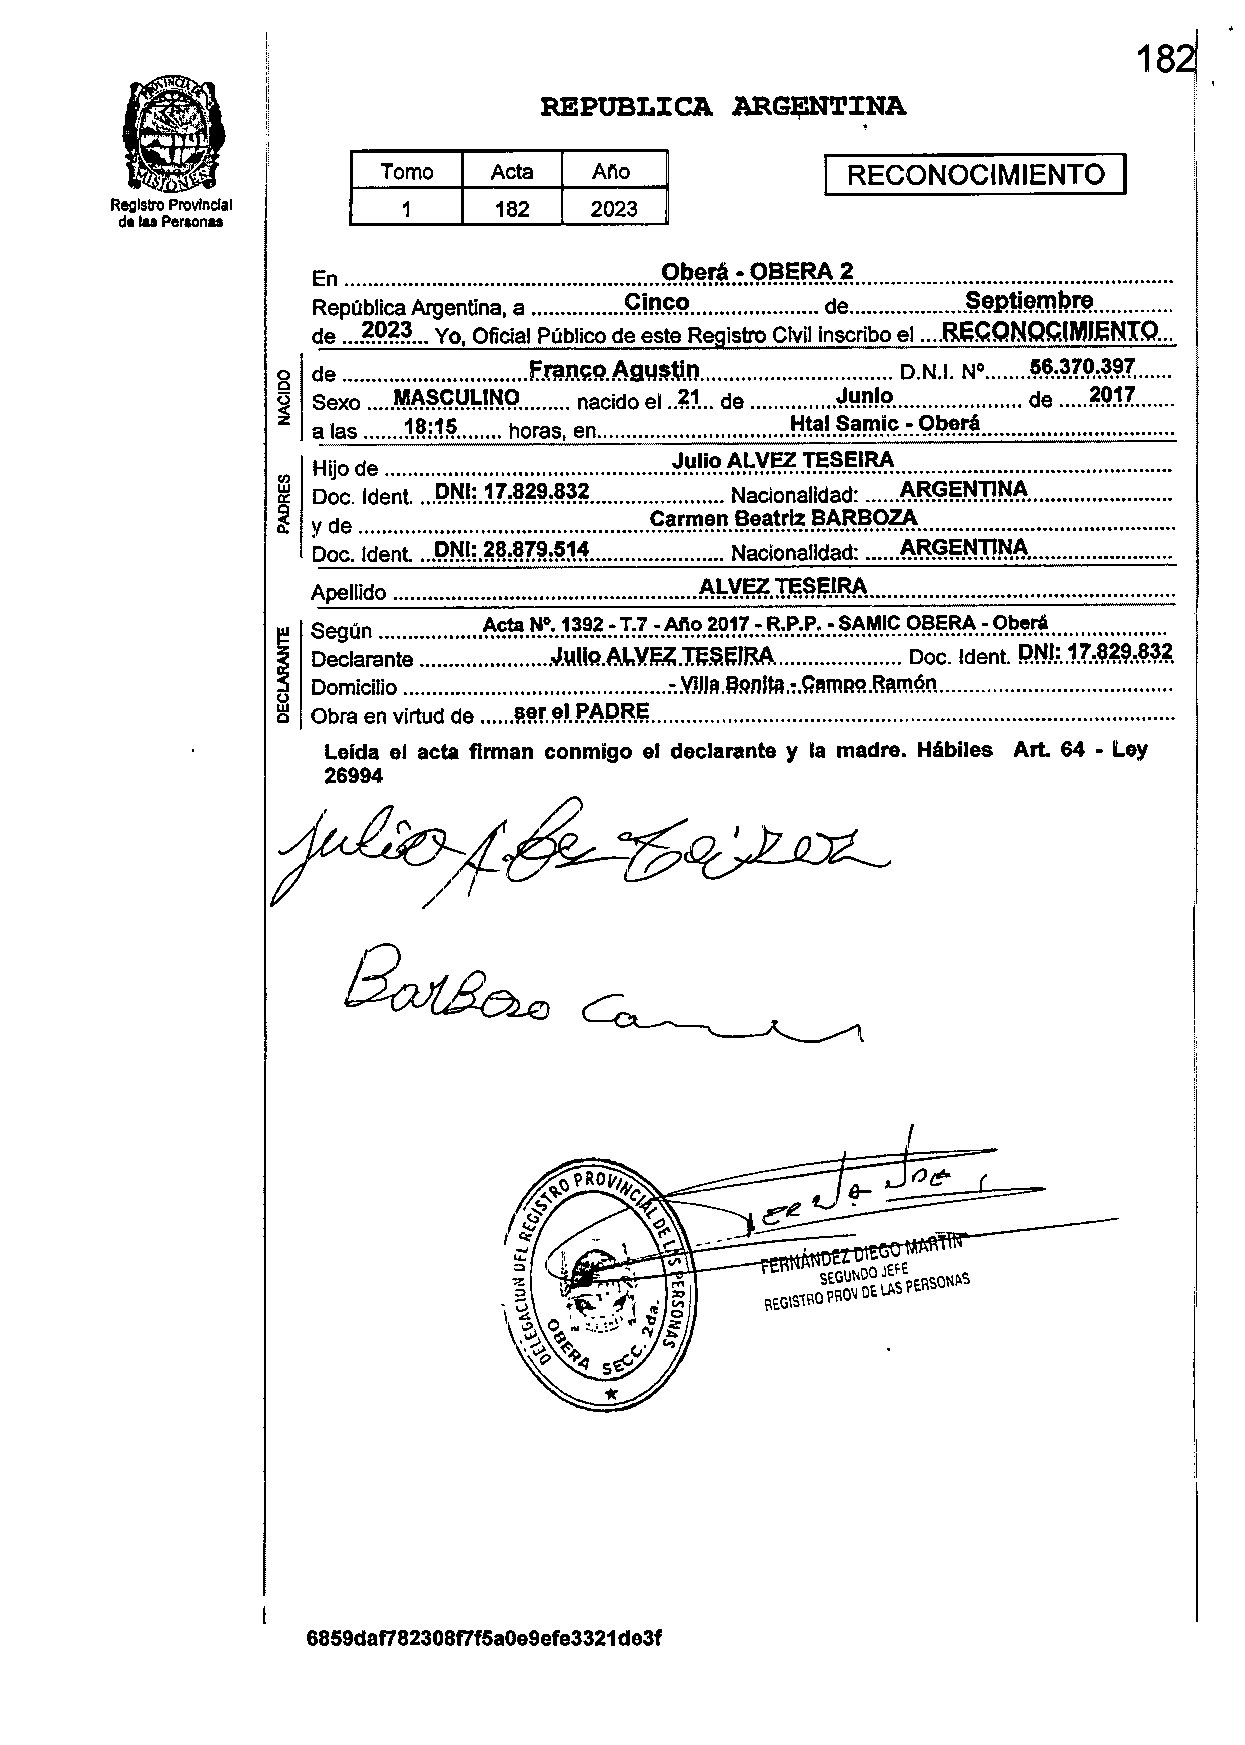 182
PROVINCIA DE
MISIONES
Registro Provincial
de las Personas
REPUBLICA ARGENTINA
Tomo Acta Año
1 182 2023
RECONOCIMIENTO
En Oberá - OBERA 2
República Argentina, a Cinco de Septiembre
de 2023 Yo, Oficial Público de este Registro Civil inscribo el RECONOCIMIENTO
NACIDO
de Franco Agustin D.N.I. Nº 56.370.397
Sexo MASCULINO nacido el 21 de Junio de 2017
a las 18:15 horas, en Htal Samic - Oberá
PADRES
Hijo de Julio ALVEZ TESEIRA
Doc. Ident. DNI: 17.829.832 Nacionalidad: ARGENTINA
y de Carmen Beatriz BARBOZA
Doc. Ident. DNI: 28.879.514 Nacionalidad: ARGENTINA
Apellido ALVEZ TESEIRA
DECLARANTE
Según Acta Nº. 1392 - T.7 - Año 2017 - R.P.P. - SAMIC OBERA - Oberá
Declarante Julio ALVEZ TESEIRA Doc. Ident. DNI: 17.829.832
Domicilio - Villa Bonita - Campo Ramón
Obra en virtud de ser el PADRE
Leída el acta firman conmigo el declarante y la madre. Hábiles Art. 64 - Ley
26994
Julio
Barboso
DELEGACION DEL REGISTRO PROVINCIAL DE LAS PERSONAS
OBERA SECC. 2da.
FERNÁNDEZ DIEGO MARTIN
SEGUNDO JEFE
REGISTRO PROV DE LAS PERSONAS
6859daf782308f7f5a0e9efe3321de3f